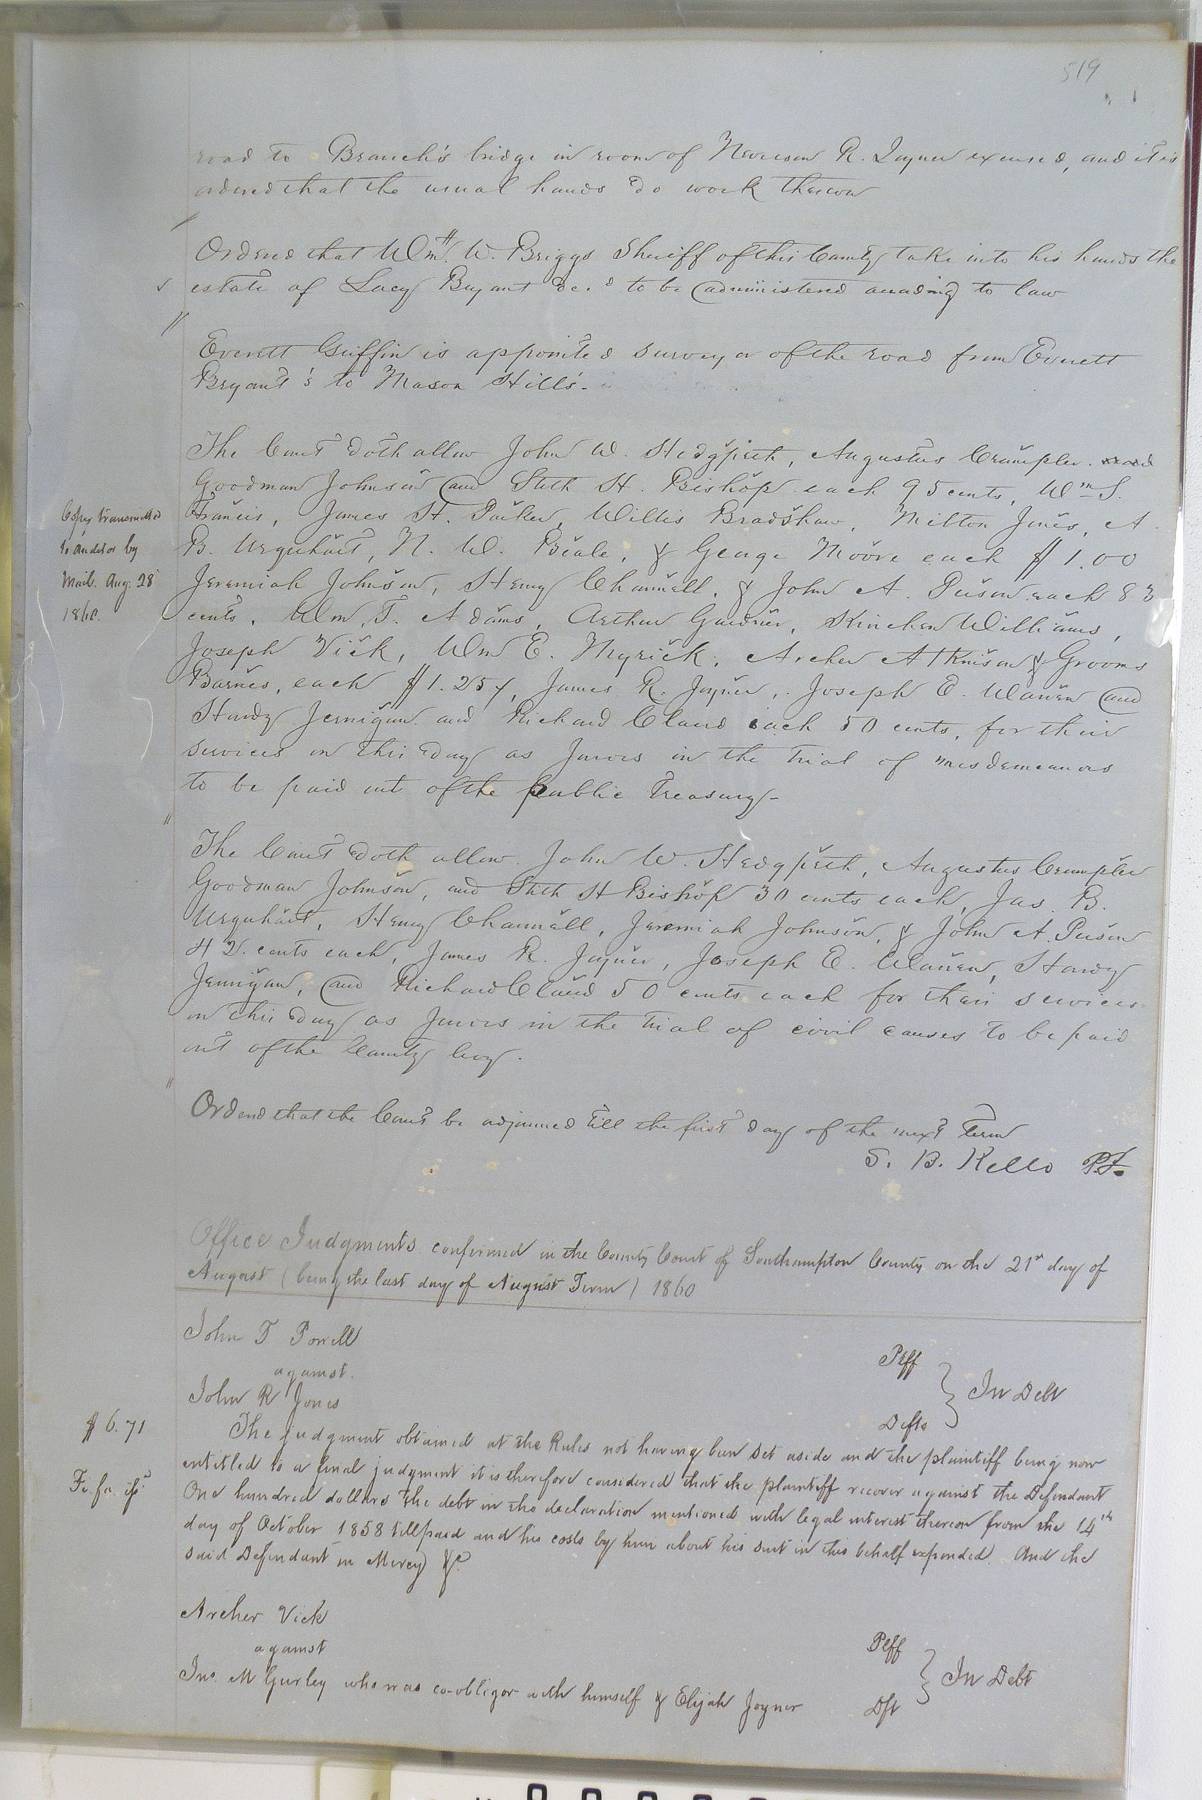 519
road to Branch's bridge in room of Newsom R. Joyner excused, and it is
ordered that the usual hands do work thereon
Ordered that Wm. W. Briggs Sheriff of this County take into his hands the
estate of Lacy Bryant dec.d to be administered according to law
Everett Griffin is appointed surveyor of the road from Everett
Bryant's to Mason Hill's.
The Court doth allow John W. Hedgpeth, Augustus Crumpler
Goodman Johnson and Seth H. Bishop each 95 cents, Wm S.
Copy transmitted
to auditor by
Mail. Aug. 28
1860.
Francis, James H. Parker, Willis Bradshaw, Milton Jones, A.
B. Urquhart, N. W. Beale, & George Moore each $1.00
Jeremiah Johnson, Henry Channell, & John A. Person each 83
cents, Wm T. Adams, Arthur Gardner, Kinchen Williams,
Joseph Vick, Wm E. Myrick, Archer Atkinson & Grooms
Barnes, each $1.25, James R. Joyner, Joseph E. Warren and
Hardy Jernigan and Richard Claud each 50 cents, for their
services on this day as Jurors in the trial of misdemeanors
to be paid out of the public Treasury-
The Court doth allow John W. Hedgpeth, Augustus Crumpler
Goodman Johnson, and Seth H Bishop 30 cents each, Jas. B.
Urquhart, Henry Channell, Jeremiah Johnson, & John A. Person
42 cents each, James R. Joyner, Joseph E. Warren, Hardy
Jernigan, and Richard Claud 50 cents each for their services
on this day as Jurors in the trial of civil causes to be paid
out of the County levy.
Ordered that the Court be adjourned till the first day of the next Term
S. B. Kello P.J.
Office Judgments confirmed in the County Court of Southampton County on the 21st day of
August (being the last day of August Term) 1860
John T Powell Plff
against } In Debt
John R Jones Defts
$6.71
The judgment obtained at the Rules not having been set aside and the plaintiff being now
entitled to a final judgment it is therefore considered that the plaintiff recover against the Defendant
Fi. fa. iss.d
One hundred dollars the debt in the declaration mentioned with legal interest thereon from the 14th
day of October 1858 till paid and his costs by him about his suit in this behalf expended. And the
said Defendant in Mercy &c.
Archer Vick Plff
against } In Debt
Jno. M Gurley who was co-obligor with himself & Elijah Joyner Dft